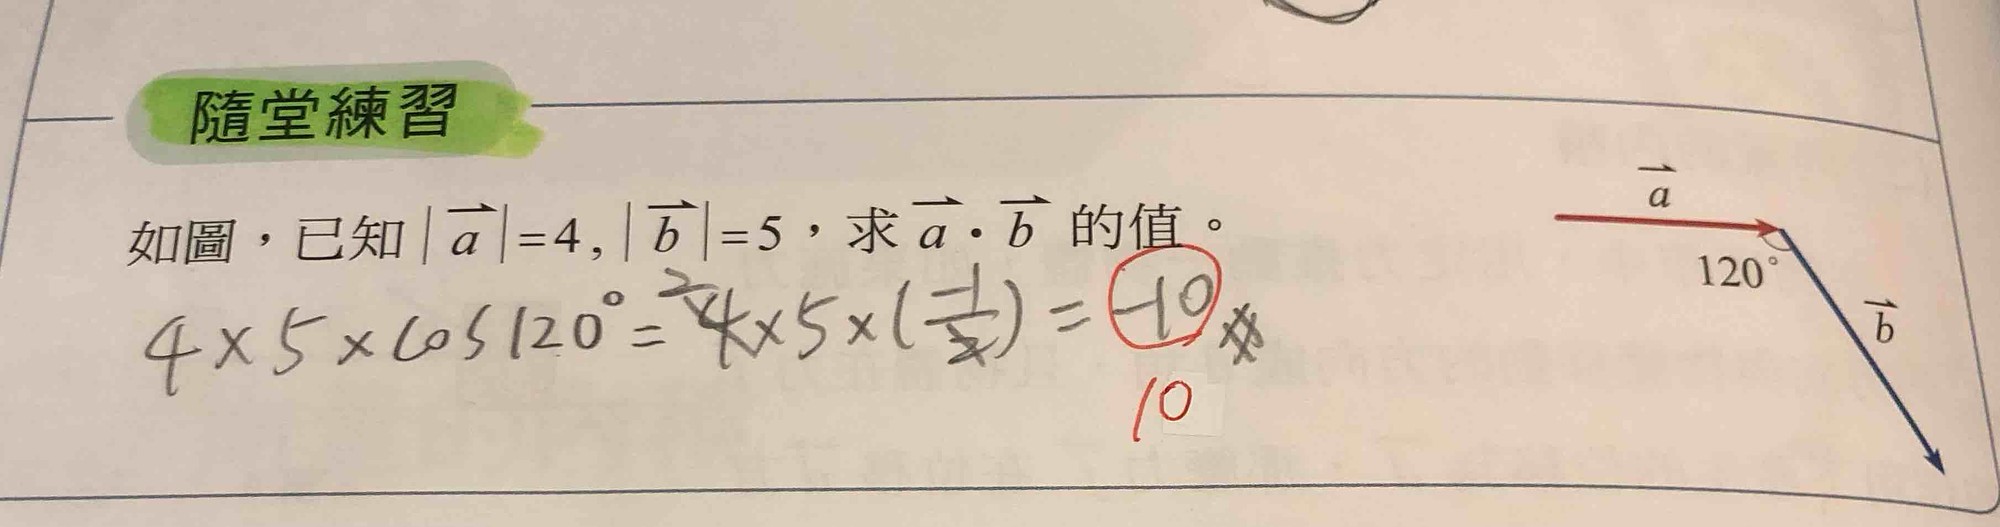 隨堂練習
如圖，已知 |a⃗|=4, |b⃗|=5，求 a⃗·b⃗ 的值。
4×5×cos120°= ²4×5×(-1/2) = -10 #
10
a⃗
120°
b⃗